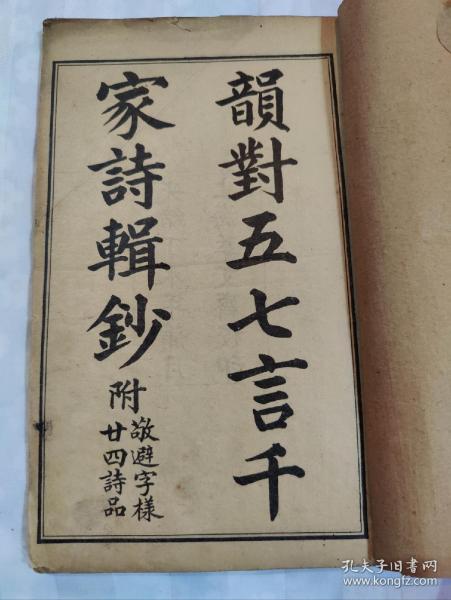 韻對五七言千
家詩輯鈔
附
敬避字樣
廿四詩品
孔夫子旧书网
www.kongfz.com